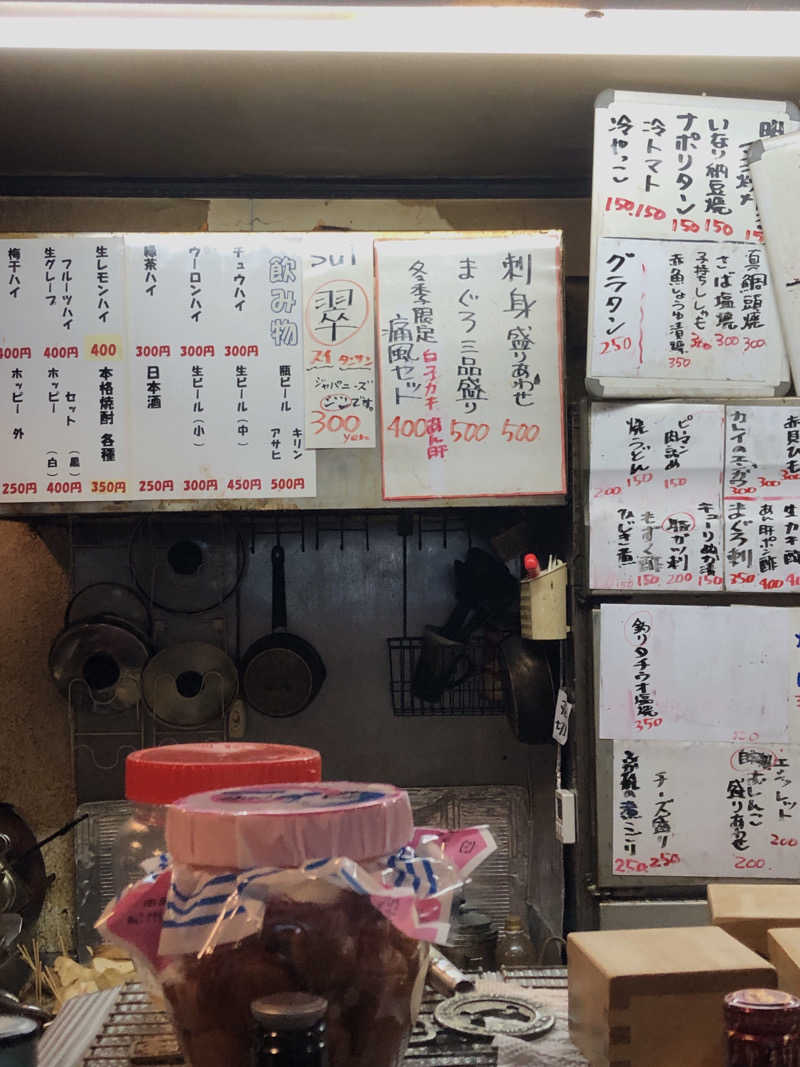 飲み物
チュウハイ 300円
ウーロンハイ 300円
緑茶ハイ 300円
生レモンハイ 400
フルーツハイ
生グレープ 400円
梅干ハイ 400円
瓶ビール キリン アサヒ 500円
生ビール（中） 450円
生ビール（小） 300円
日本酒 250円
本格焼酎 各種 350円
ホッピー セット（黒）（白） 400円
ホッピー 外 250円
sui
翠
スイ タンサン
ジャパニーズ
ジンです。
300
yen
刺身盛りあわせ 500
まぐろ三品盛り 500
冬季限定 白子カキあん肝
痛風セット 400
いなり納豆焼 150
ナポリタン 150
冷トマト 150
冷やっこ 150
真鯛頭焼 300
さば塩焼 300
子持ちししゃも 300
赤魚しょうゆ漬焼 350
グラタン 250
カレイのエンガワ 300
ピーマン肉詰め 150
焼うどん 150
200
生カキ酢
あん肝ポン酢 400
まぐろ刺 350
キューリぬか漬 150
豚ガツ刺 200
もずく酢 150
ひじき煮 150
釣りタチウオ塩焼 350
盛りあわせ 200
200
チーズ盛り 250
250